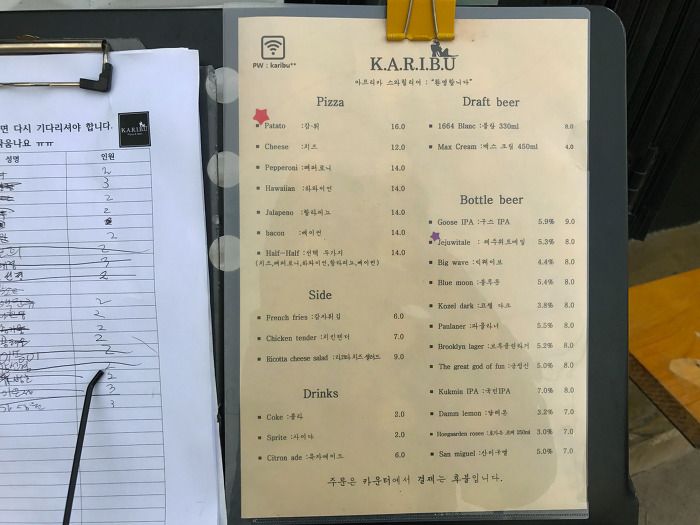 면 다시 기다리셔야 합니다.
KARIBU
ㅠㅠ
성명 인원
2
3
2
2
2
3
2
2
2
2
2
2
3
3
PW : karibu**
K.A.R.I.B.U
아프리카 스와힐리어 : "환영합니다"
Pizza
Patato :감·튀 16.0
Cheese :치즈 12.0
Pepperoni :페퍼로니 14.0
Hawaiian :하와이언 14.0
Jalapeno :할라피뇨 14.0
bacon :베이컨 14.0
Half-Half :선택 두가지 14.0
(치즈,페퍼로니,하와이언,할라피뇨,베이컨)
Side
French fries :감자튀김 6.0
Chicken tender :치킨텐더 7.0
Ricotta cheese salad :리코타 치즈 샐러드 9.0
Drinks
Coke :콜라 2.0
Sprite :사이다 2.0
Citron ade :유자에이드 6.0
Draft beer
1664 Blanc :블랑 330ml 8.0
Max Cream :맥스 크림 450ml 4.0
Bottle beer
Goose IPA :구스 IPA 5.9% 9.0
Jejuwitale : 제주위트에일 5.3% 8.0
Big wave :빅웨이브 4.4% 8.0
Blue moon :블루문 5.4% 8.0
Kozel dark :코젤 다크 3.8% 8.0
Paulaner :파울라너 5.5% 8.0
Brooklyn lager :브루클린라거 5.2% 8.0
The great god of fun :긍정신 5.0% 8.0
Kukmin IPA :국민IPA 7.0% 8.0
Damm lemon :담레몬 3.2% 7.0
Hoegaarden rosee :호가든 로제 250ml 3.0% 7.0
San miguel :산미구엘 5.0% 7.0
주문은 카운터에서 결제는 후불입니다.